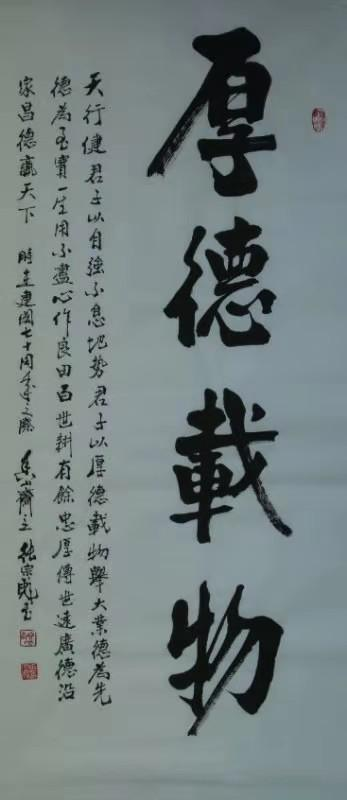 厚德載物
天行健君子以自強不息地势君子以厚德載物舉大業德為先
德為至寶一生用不盡心作良田百世耕有餘忠厚傳世遠廣德沿
家昌德贏天下 時在建國七十周年之際 齊之 張宗彪書